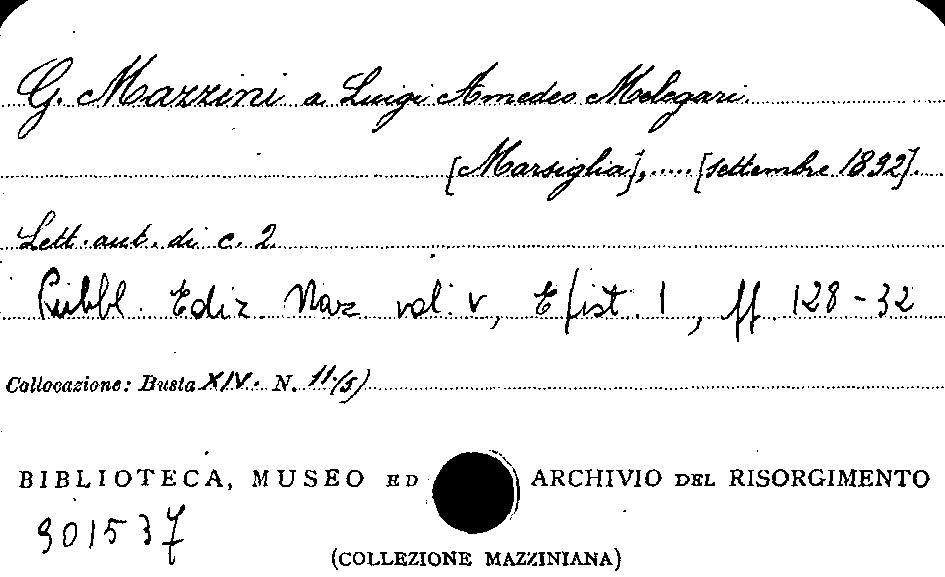 G. Mazzini a Luigi Amedeo Melegari.
[Marsiglia], ..... [settembre 1832].
Lett. aut. di c. 2
Pubbl. Ediz. Naz vol. V, Epist. I, pp. 128-32
Collocazione: Busta XIV. N. 11(5)
BIBLIOTECA, MUSEO ED ARCHIVIO DEL RISORGIMENTO
901537
(COLLEZIONE MAZZINIANA)